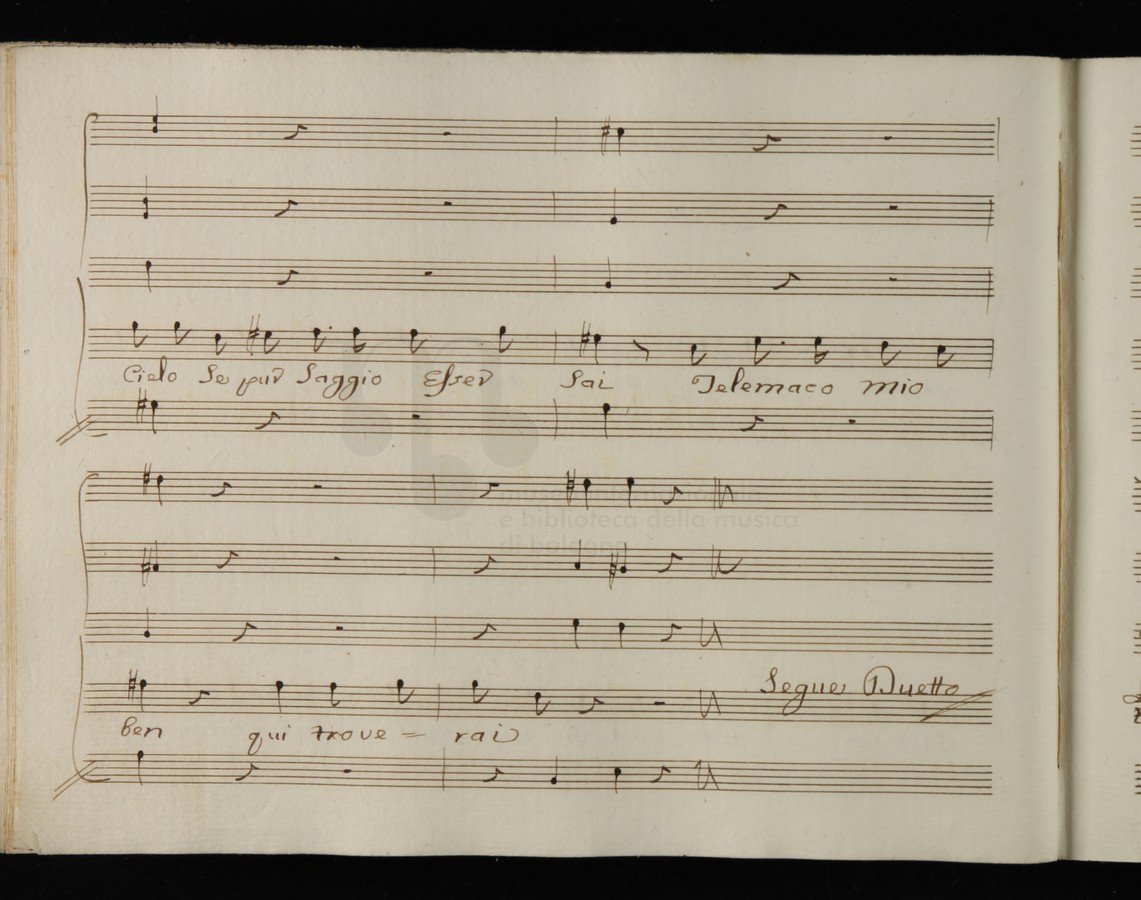 Cielo se pur saggio Esser sai Telemaco mio
museo internazionale
e biblioteca della musica
di bologna
Segue Duetto
ben qui trove = rai